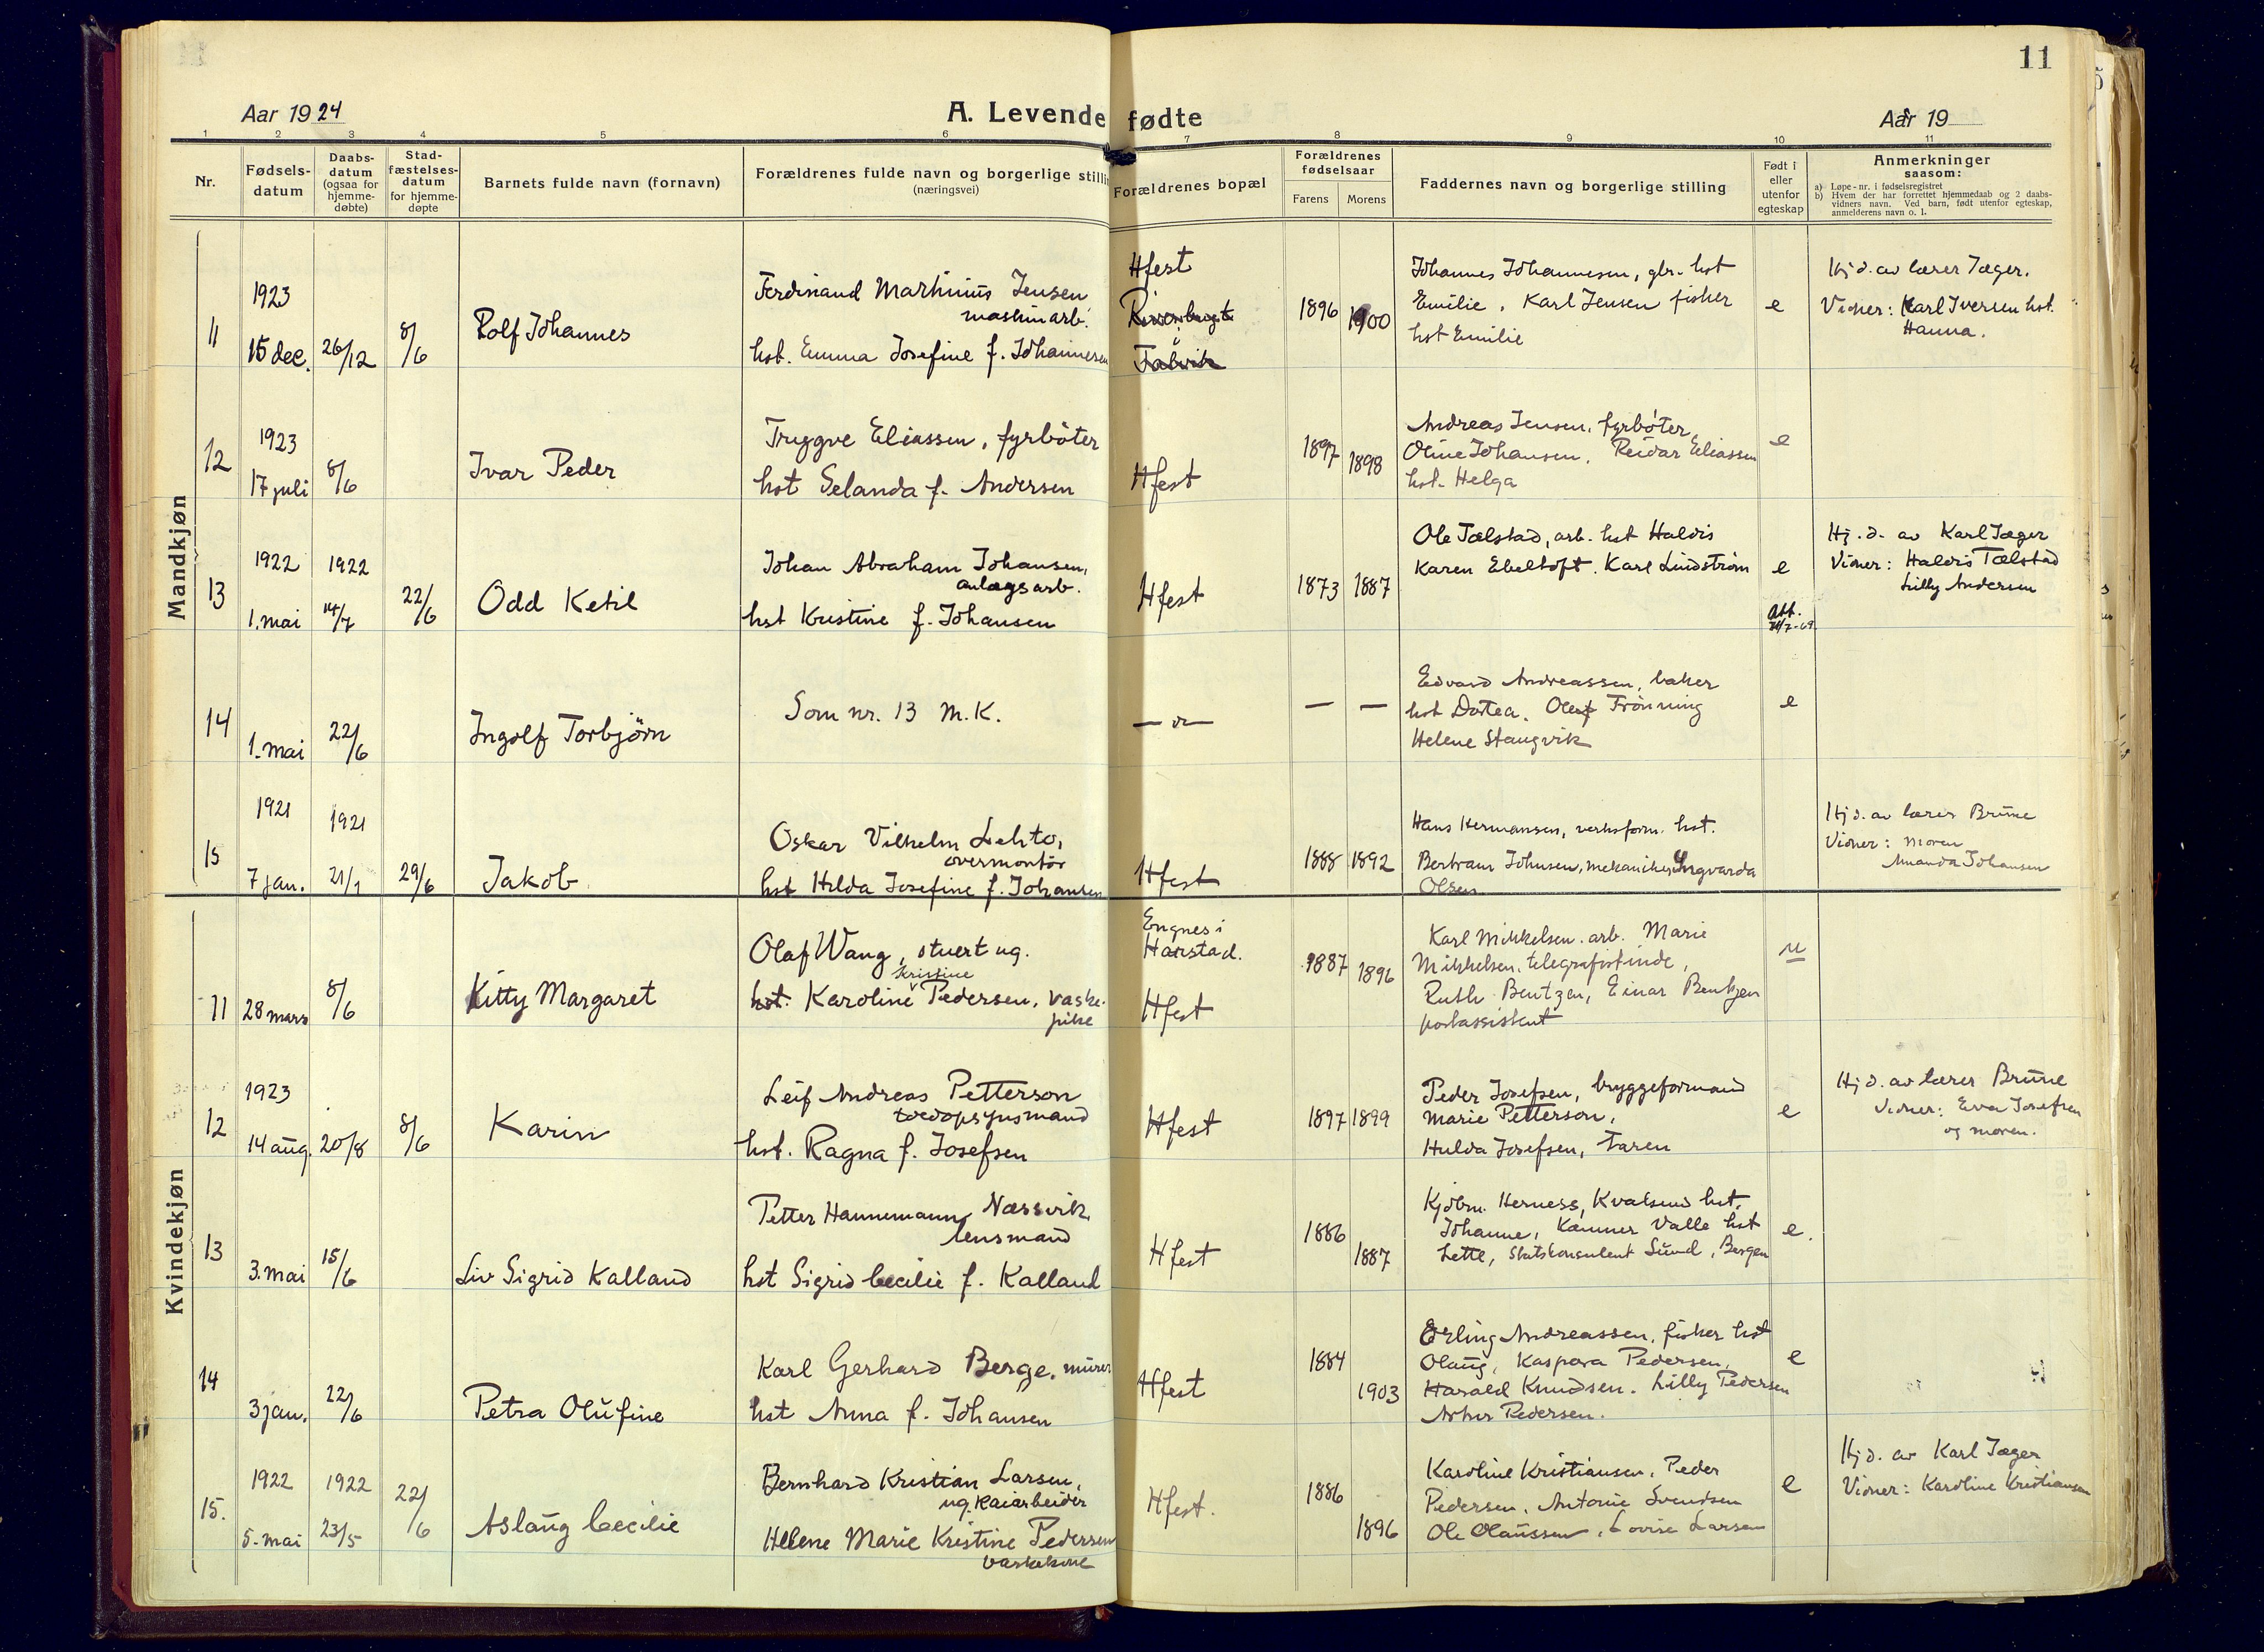 11
Aar 1924
A. Levende fødte
Aar 19
1 2 3 4 5 6 7 8 9 10 11
Nr.
Fødsels-
datum
Daabs-
datum
(ogsaa for
hjemme-
døbte)
Stad-
fæstelses-
datum
for hjemme-
døpte
Barnets fulde navn (fornavn)
Forældrenes fulde navn og borgerlige stilli
(næringsvei)
Forældrenes bopæl
Forældrenes
fødselsaar
Farens
Morens
Faddernes navn og borgerlige stilling
Født i
eller
utenfor
egteskap
Anmerkninger
saasom:
a) Løpe-nr. i fødselsregistret
b) Hvem der har forrettet hjemmedaab og 2 daabs-
vidners navn. Ved barn, født utenfor egteskap,
anmelderens navn o. l.
Mandkjøn
11
1923
15 dec.
26/12
8/6
Rolf Johannes
Ferdinand Martinius Jensen
maskinarb.
hst. Emma Josefine f. Johannesen
Hfest
Talvik
1896
1900
Johannes Johannesen, gbr. hst
Emilie. Karl Jensen fisker
hst Emilie
e
Hj d. av lærer Jæger.
Vidner: Karl Iversen hst.
Hanna.
12
1923
17 juli
8/6
Ivar Peder
Tryggve Eliassen, fyrböter
hst Selanda f. Andersen
Hfest
1897
1898
Andreas Jensen, fyrböter,
Oline Johansen, Reidar Eliassen
hst. Helga
e
13
1922
1. mai
1922
14/7
22/6
Odd Ketil
Johan Abraham Johansen,
anlægsarb.
hst Kristine f. Johansen
Hfest
1873
1887
Ole Tælstad, arb. hst Haldis
Karen Ebeltoft. Karl Lindström
e
Att.
Hj. d. av Karl Jæger
Vidner: Haldis Tælstad
Lilly Andersen
14
1. mai
22/6
Ingolf Torbjörn
Som nr. 13 M.K.
— " —
—
—
Edvard Andreassen, baker
hst Dortea. Olaf Frönning
Helene Stangvik
e
15
1921
7 jan.
1921
21/1
29/6
Jakob
Oskar Vilhelm Lehto,
overmontör
hst Hilda Josefine f. Johansen
Hfest
1888
1892
Hans Hermansen, verksform. hst.
Bertram Johnsen, mekaniker, Ingvarda
Olsen
Hj d. av lærer Brune
Vidner: moren
Amanda Johansen
Kvindekjøn
11
28 mars
8/6
Kitty Margaret
Olaf Wang, stuert ug.
Kristine
hst. Karoline Pedersen, vaske-
pike
Engnes i
Harstad.
Hfest
1887
1896
Karl Mikkelsen. arb. Marie
Mikkelsen, telegrafistinde,
Ruth Bentzen, Einar Bentzen
postassistent
u
12
1923
14 aug.
20/8
8/6
Karin
Leif Andreas Petterson
hst. Ragna f. Josefsen
Hfest
1897
1899
Peder Josefsen, bryggeformand
Marie Petterson,
Hulda Josefsen, faren
e
Hj d. av lærer Brune
Vidner: Eva Josefsen
og moren.
13
3. mai
15/6
Liv Sigrid Kalland
Petter Hannemann Næssvik
lensmand
hst Sigrid Cecilie f. Kalland
Hfest
1886
1887
Kjöbm. Herness, Kvalsund hst.
Johanne, Kæmner Valle hst
Lette, Statskonsulent Sund, Bergen
e.
14
3 jan.
22/6
Petra Olufine
Karl Gerhard Berge, murer
hst Anna f. Johansen
Hfest
1884
1903
Erling Andreassen, fisker hst
Olaug, Kaspara Pedersen,
Harald Knudsen. Lilly Pedersen
Artur Pedersen.
e
15.
1922
5. mai
1922
23/5
22/6
Aslaug Cecilie
Bernhard Kristian Larsen,
ug. Kaiarbeider
Helene Marie Kristine Pedersen
vaskekone
Hfest.
1886
1896
Karoline Kristiansen, Peder
Pedersen, Antonie Svendsen
Ole Olaussen, Lovise Larsen
e
Hj d. av Karl Jæger
Vidner: Karoline Kristiansen